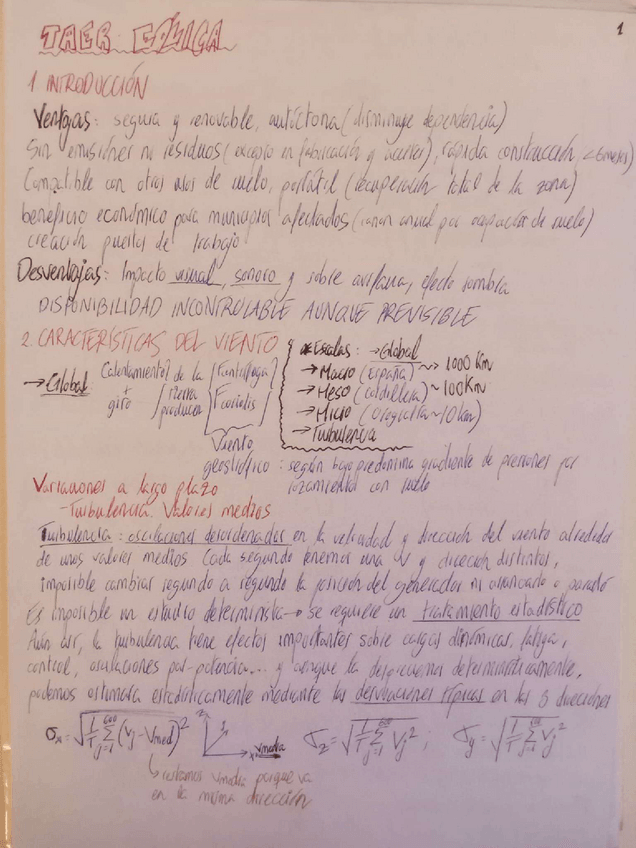 1
TAER EÓLICA
1. INTRODUCCIÓN
Ventajas: segura y renovable, autóctona (disminuye dependencia)
Sin emisiones ni residuos (excepto en fabricación y aceites), rápida construcción <6meses)
Compatible con otros usos de suelo, portátil (recuperación total de la zona)
beneficio económico para municipios afectados (canon anual por ocupación de suelo)
creación puestos de trabajo
Desventajas: Impacto visual, sonoro y sobre avifauna, efecto sombra
DISPONIBILIDAD INCONTROLABLE AUNQUE PREVISIBLE
2. CARACTERÍSTICAS DEL VIENTO
→ Global
Calentamiento + giro de la tierra producen
F centrífuga
F coriolis
Viento
geostrófico: según bajo predomina gradiente de presiones por
rozamientos con suelo
Escalas: → Global
→ Macro (España) ~> 1000 Km
→ Meso (cordillera) ~ 100 Km
→ Micro (Orografía ~ 10 Km)
→ Turbulencia
Variaciones a largo plazo
Turbulencia. Valores medios
Turbulencia: oscilaciones desordenadas en la velocidad y dirección del viento alrededor
de unos valores medios. Cada segundo tenemos una V y dirección distintos,
imposible cambiar segundo a segundo la posición del generador ni arrancarlo o pararlo
Es imposible un estudio determinista → se requiere un tratamiento estadístico
Aún así, la turbulencia tiene efectos importantes sobre cargas dinámicas, fatiga,
control, oscilaciones par-potencia... y aunque la despreciemos determinísticamente,
podemos estimarla estadísticamente mediante las desviaciones típicas en las 3 direcciones
σx = √(1/T Σ (Vj - Vmed)²
z
y
x vmedia
σz = √(1/T Σ Vj² ; σy = √(1/T Σ Vj²
↳ restamos vmedia porque va
en la misma dirección